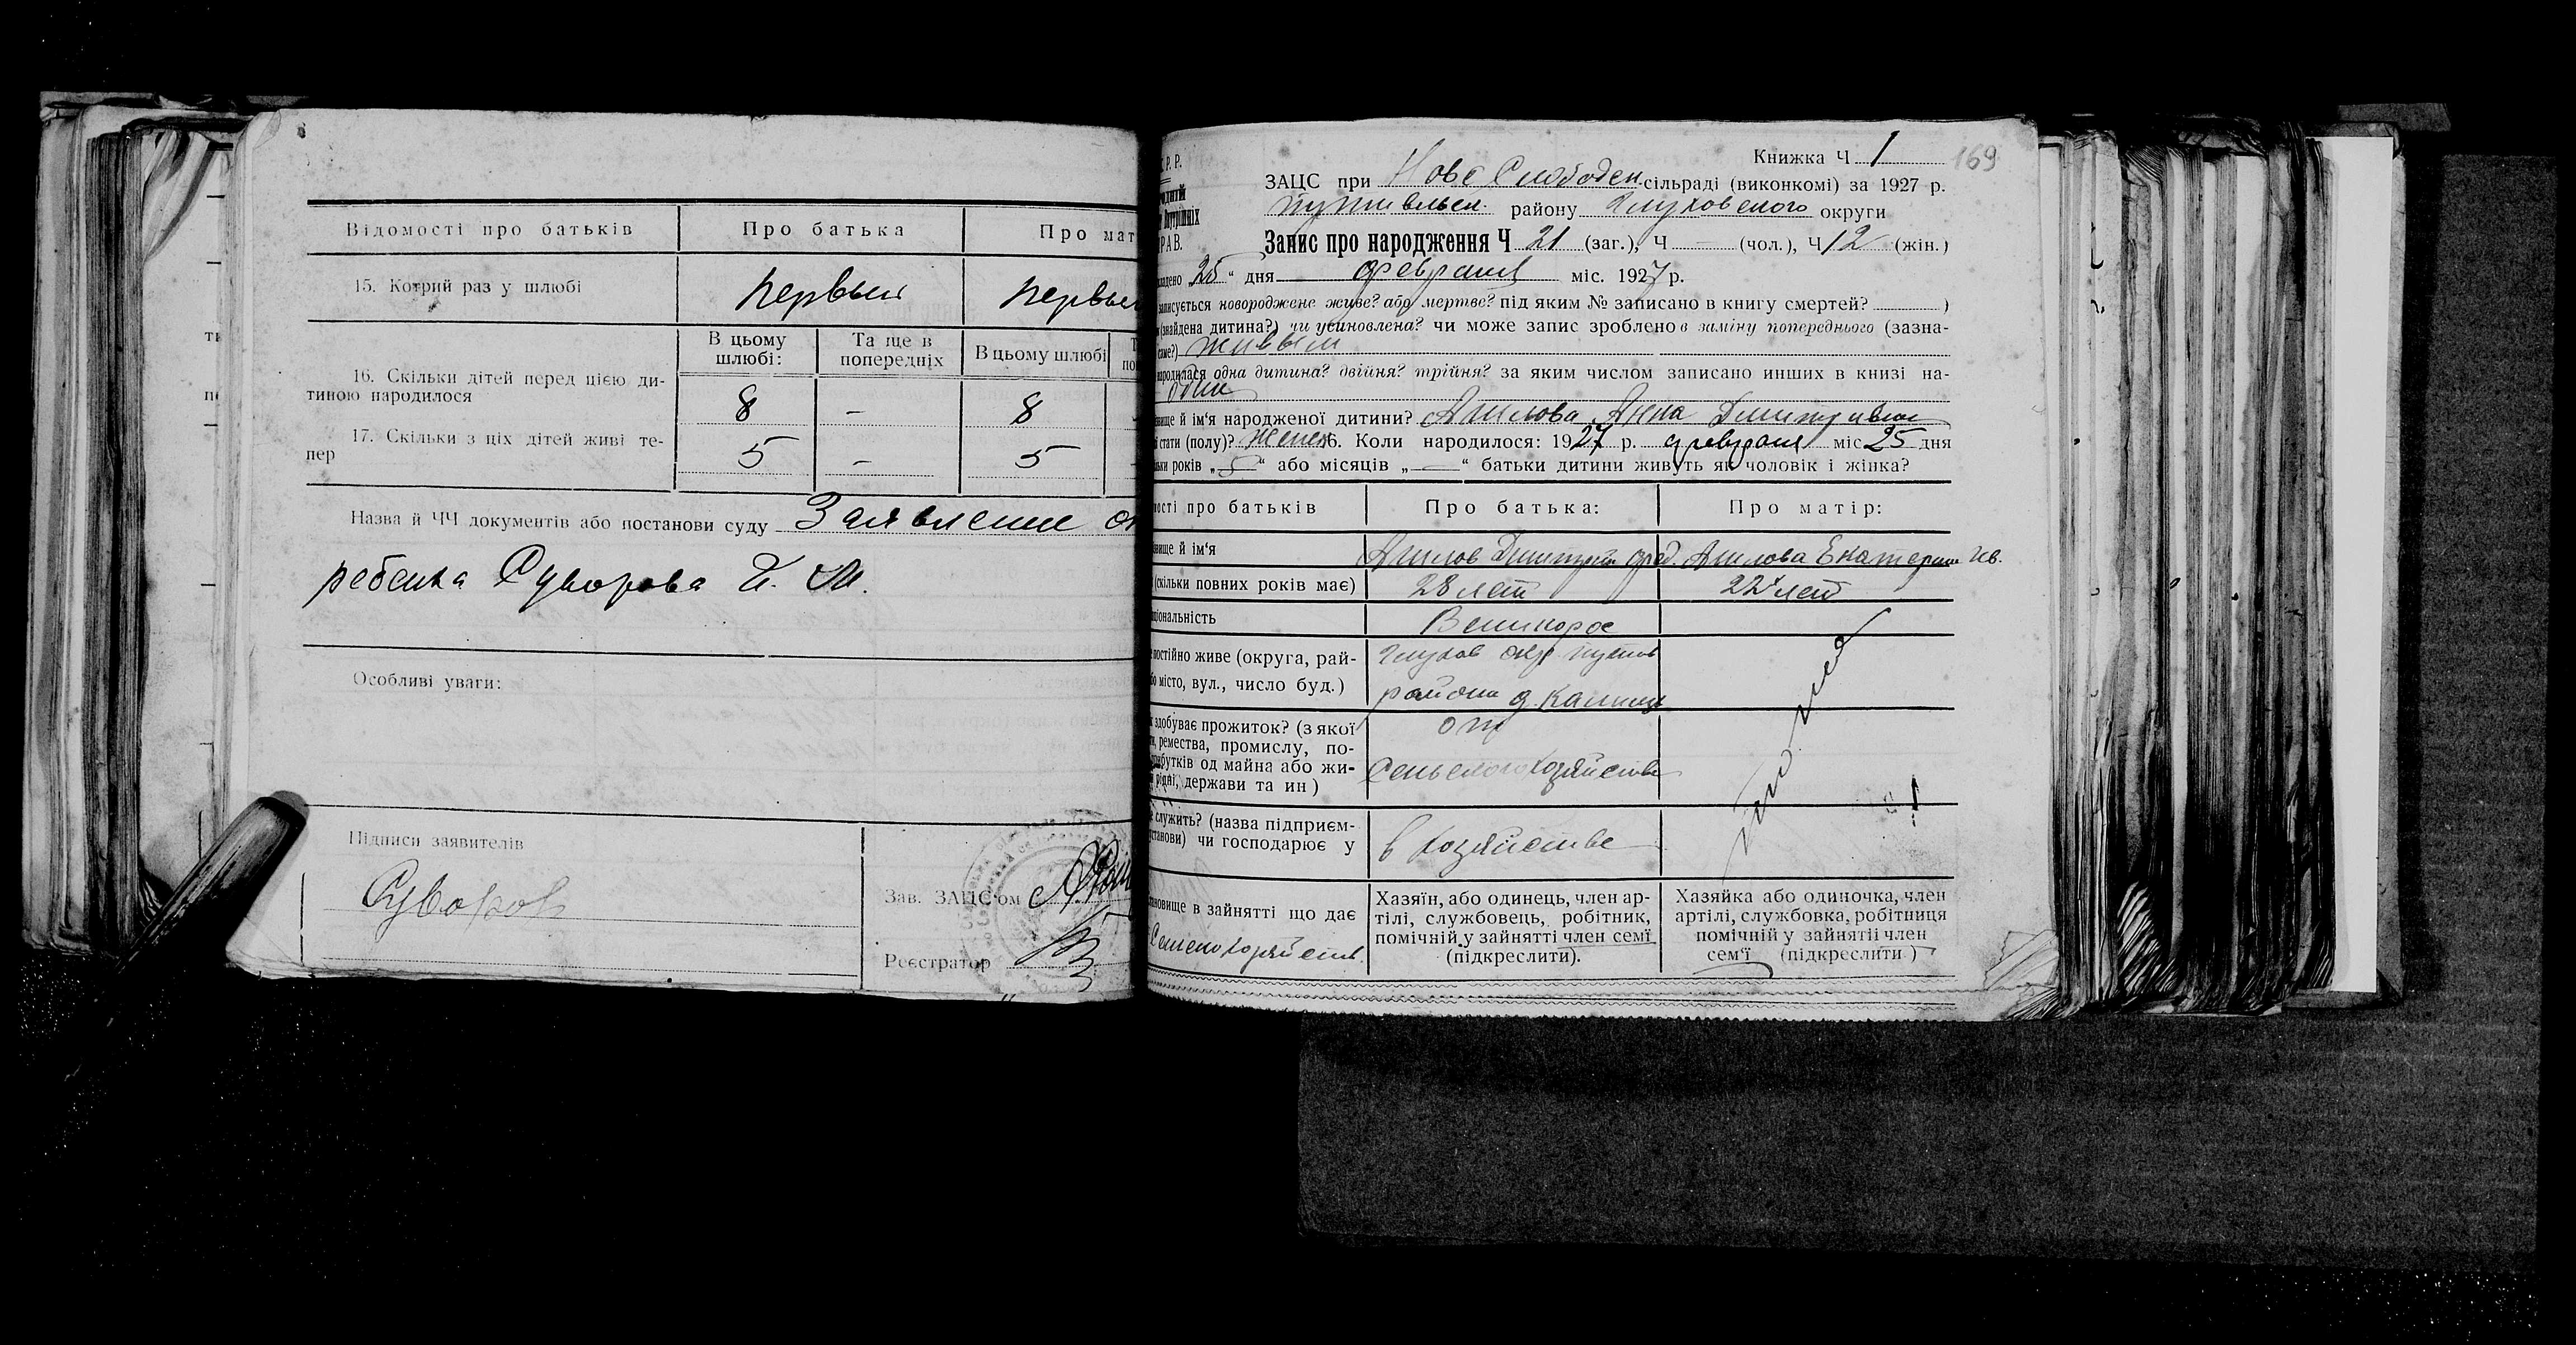 Відомості про батьків
Про батька
Про мат
15. Котрий раз у шлюбі
первый
первый
В цьому шлюбі:
Та ще в попередніх
В цьому шлюбі
16. Скільки дітей перед цією ди-
тиною народилося
8
–
8
17. Скільки з ціх дітей живі те-
пер
5
–
5
Назва й ЧЧ документів або постанови суду Заявление
ребенка Суворова И. М.
Особливі уваги:
Підписи заявителів
Суворов
Зав. ЗАЦС'ом
Реєстратор
Р. Р.
РАВ.
Книжка Ч 1
169
ЗАЦС при Ново Слободск. сільраді (виконкомі) за 1927 р.
Путивльск. району Глуховского округи
Запис про народження Ч 21 (заг.), Ч — (чол.), Ч 12 (жін.)
25 " дня февраля міс. 1927 р.
записується новороджене живе? або мертве? під яким № записано в книгу смертей? )
(знайдена дитина?) чи усиновлена? чи може запис зроблено в заміну попереднього (зазна-
саме?) живым
народилася одна дитина? двійня? трійня? за яким числом записано инших в книзі на-
один
вище й ім'я народженої дитини? Ашлова Анна Дмитривна
стати (полу)? женск 6. Коли народилося: 1927 р. февраля міс 25 дня
років „ 5 " або місяців „ — " батьки дитини живуть як чоловік і жінка?
мості про батьків
Про батька:
Про матір:
вище й ім'я
Ашлов Дмитрий Фед.
Ашлова Екатерин Ив.
(скільки повних років має)
28 лет
22 лет
ціональність
Великорос
постійно живе (округа, рай-
місто, вул., число буд.)
Глухов окр Путив
района д. Калищ
здобуває прожиток? (з якої
ремества, промислу, по-
рибутків од майна або жи-
рідні, держави та ин)
от
Сельского хозяйства
служить? (назва підприєм-
станови) чи господарює у
в хозяйстве
ановище в зайнятті що дає
Сельско хозяйств.
Хазяїн, або одинець, член ар-
тілі, службовець, робітник,
помічній у зайнятті член семї
(підкреслити).
Хазяйка або одиночка, член
артілі, службовка, робітниця
помічній у зайнятії член
сем'ї (підкреслити)